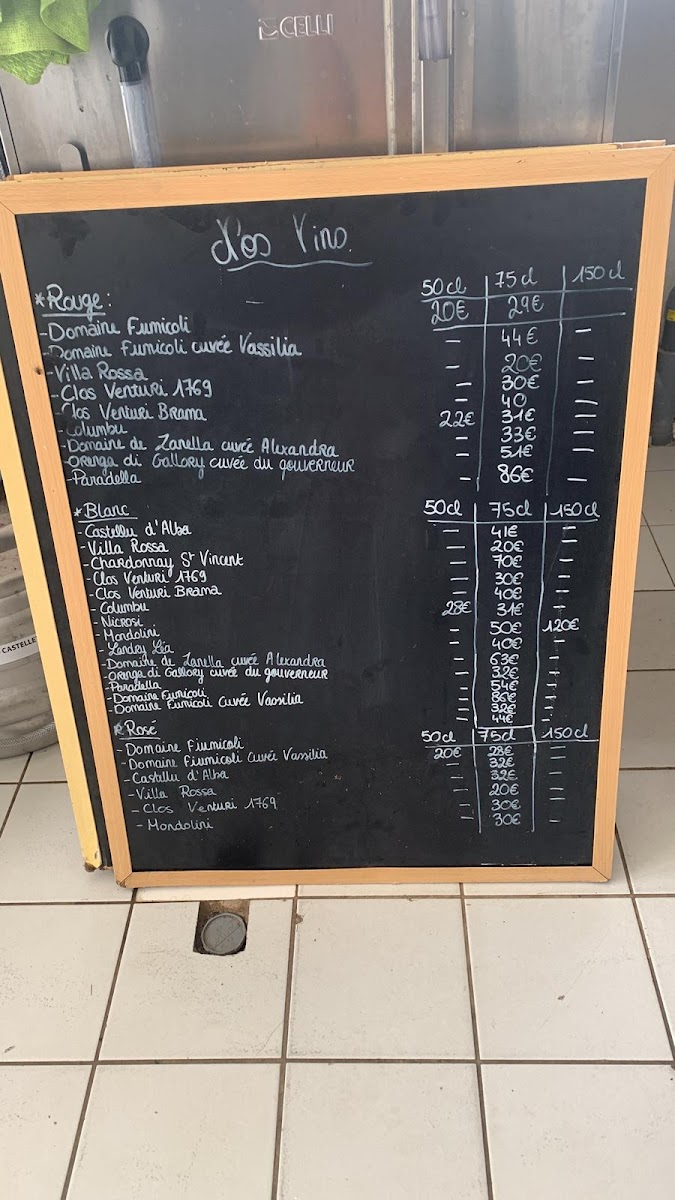 CELLI
Nos Vins.
*Rouge: 50cl 75cl 150cl
-Domaine Fiumicoli 20€ 29€
-Domaine Fiumicoli cuvée Vassilia - 44€ -
-Villa Rossa - 20€ -
-Clos Venturi 1769 - 30€ -
-Clos Venturi Brama - 40 -
-Columbu 22€ 31€ -
-Domaine de Zanella cuvée Alexandra - 33€ -
-Orenga di Gallory cuvée du gouverneur - 51€ -
-Paradella - 86€ -
*Blanc 50cl 75cl 150cl
-Castellu d'Alba - 41€ -
-Villa Rossa - 20€ -
-Chardonnay St Vincent - 70€ -
-Clos Venturi 1769 - 30€ -
-Clos Venturi Brama - 40€ -
-Columbu 28€ 31€ -
-Nicrosi - 50€ 120€
-Mondolini - 40€ -
-Landry Lia - 63€ -
-Domaine de Zanella cuvée Alexandra - 32€ -
-Orenga di Gallory cuvée du gouverneur - 54€ -
-Paradella - 86€ -
-Domaine Fiumicoli - 32€ -
-Domaine Fiumicoli cuvée Vassilia - 44€ -
*Rosé 50cl 75cl 150cl
-Domaine Fiumicoli 20€ 28€ -
-Domaine Fiumicoli cuvée Vassilia - 32€ -
-Castellu d'Alba - 32€ -
-Villa Rossa - 20€ -
-Clos Venturi 1769 - 30€ -
-Mondolini - 30€ -
CASTELLE